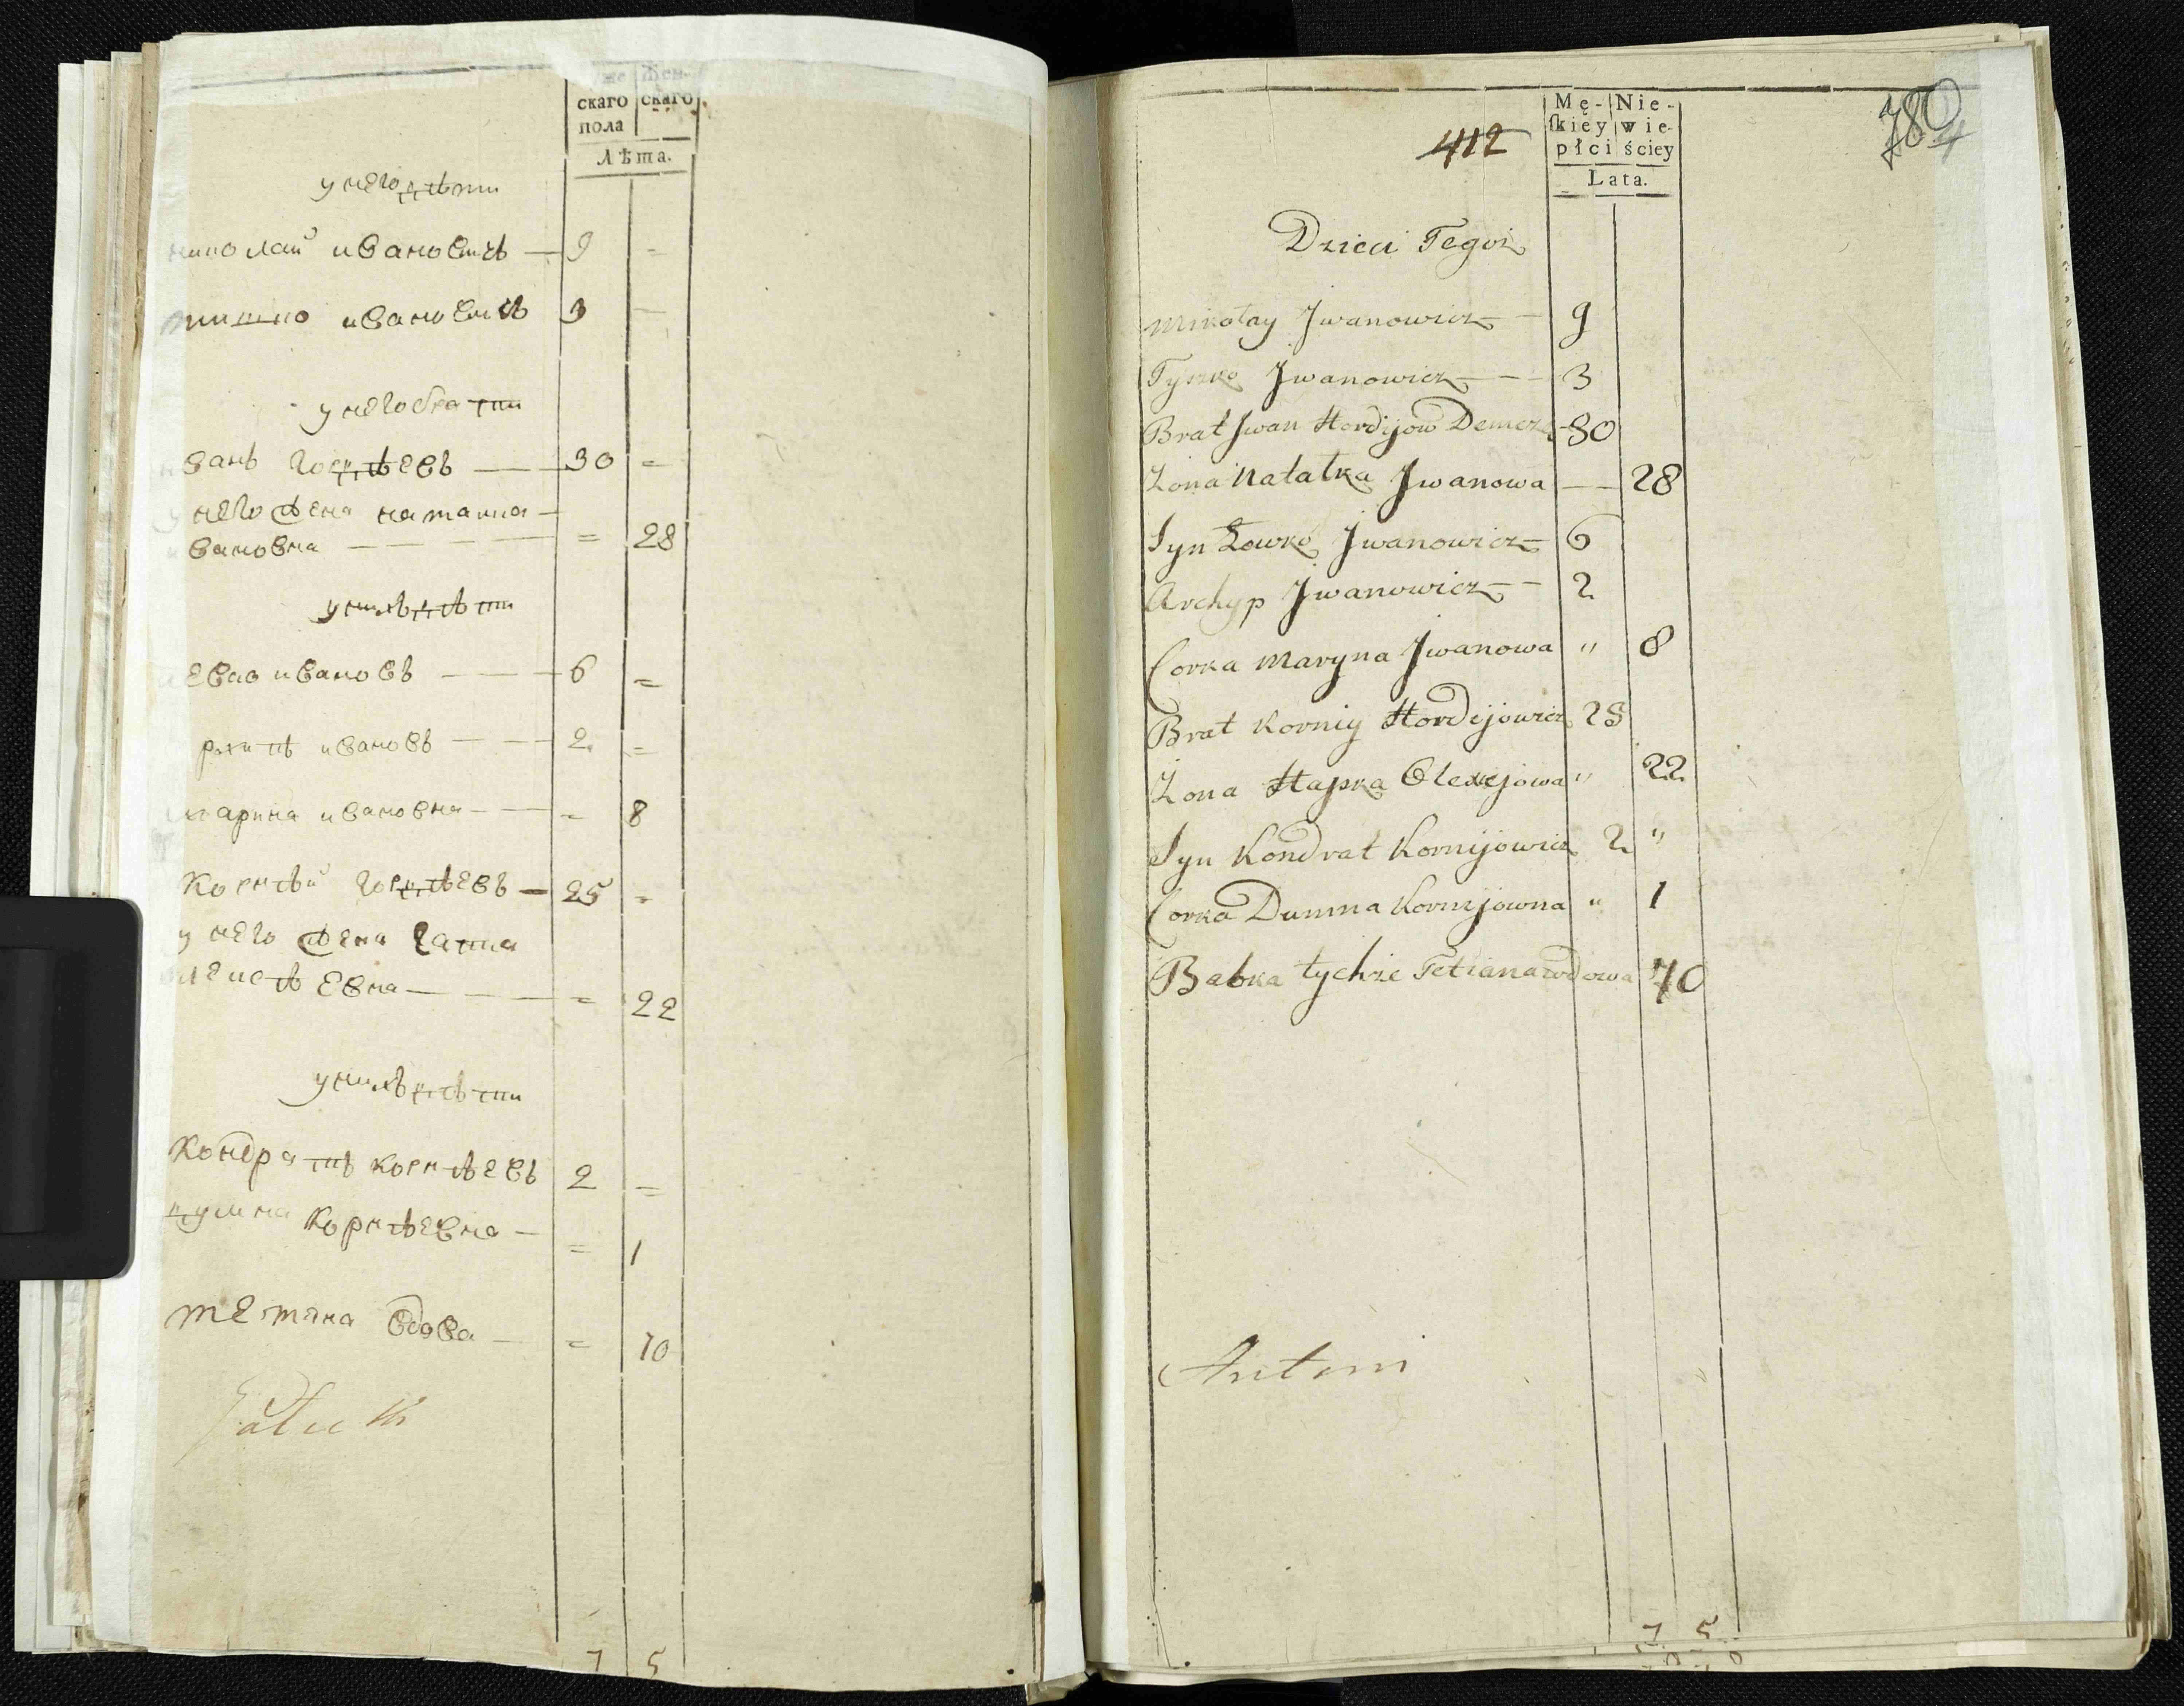 же Жен-
скаго скаго
пола
Лѣта.
у него дѣти
николай ивановичъ — 9 =
тишко ивановичъ 3 —
у него брати
вань гордѣевъ — 30 =
у него жена наталка —
ивановна — = 28
у нихъ дѣти
евко ивановъ — 6 =
рхипъ ивановъ — 2 =
марина ивановна — = 8
Корнѣй гордѣевъ — 25 =
у него жена гапка
лексѣевна — = 22
у нихъ дѣти
Кондратъ корнѣевъ 2 =
думна корнѣевна — = 1
тетяна вдова — = 70
7 5
412
780
4
Mę- Nie-
ſkiey wie-
płci ściey
Lata.
Dzieci Tegoż
Mikołay Jwanowicz — 9
Tyszko Jwanowicz — 3
Brat Jwan Hordijow 30
Żona Natalka Jwanowa — 28
Syn Łewko Jwanowicz 6
Archyp Jwanowicz — 2
Corka Maryna Jwanowa " 8
Brat Korniy Hordijowicz 25
Żona Hapka Olexiejowa " 22
Syn Kondrat Kornijowicz 2 "
Corka Dumna Kornijowna " 1
Babka tychże Tetiana wdowa 70
Antoni
7 5